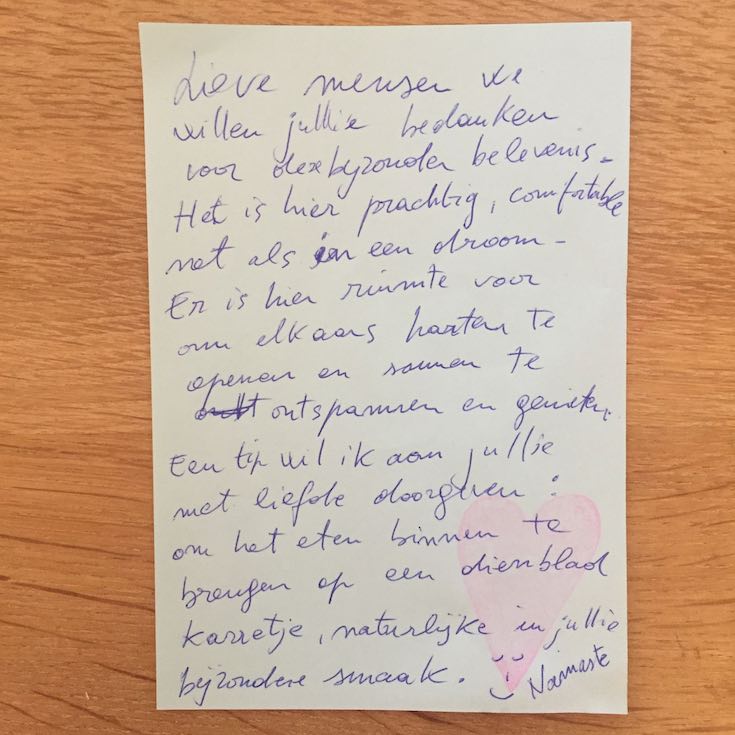 Lieve mensen we
willen jullie bedanken
voor deze bijzonder belevenis.
Het is hier prachtig, comfortable
net als in een droom -
Er is hier ruimte voor
om elkaars harten te
openen en samen te
ontspannen en genieten.
Een tip wil ik aan jullie
met liefde doorgeven:
om het eten binnen te
brengen op een dienblad
karretje, natuurlijke in jullie
bijzondere smaak. :)
Namaste